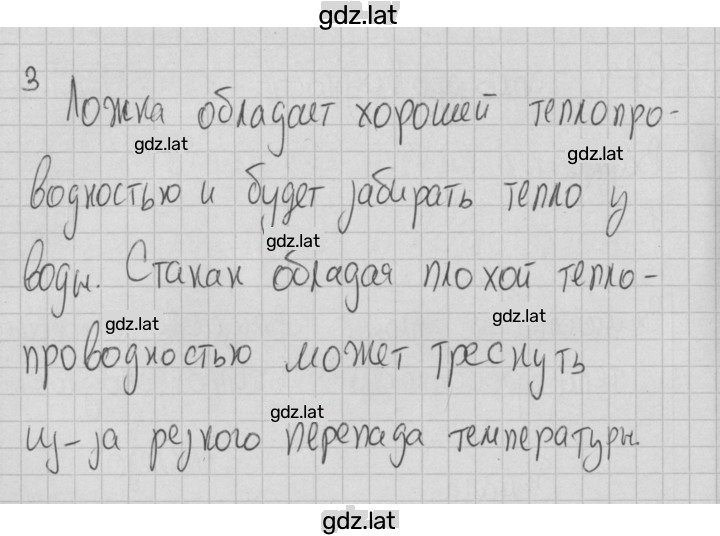 gdz.lat
3
Ложка обладает хорошей теплопро-
gdz.lat
gdz.lat
водностью и будет забирать тепло у
gdz.lat
воды. Стакан обладая плохой тепло-
gdz.lat
gdz.lat
проводностью может треснуть
gdz.lat
из-за резкого перепада температуры.
gdz.lat